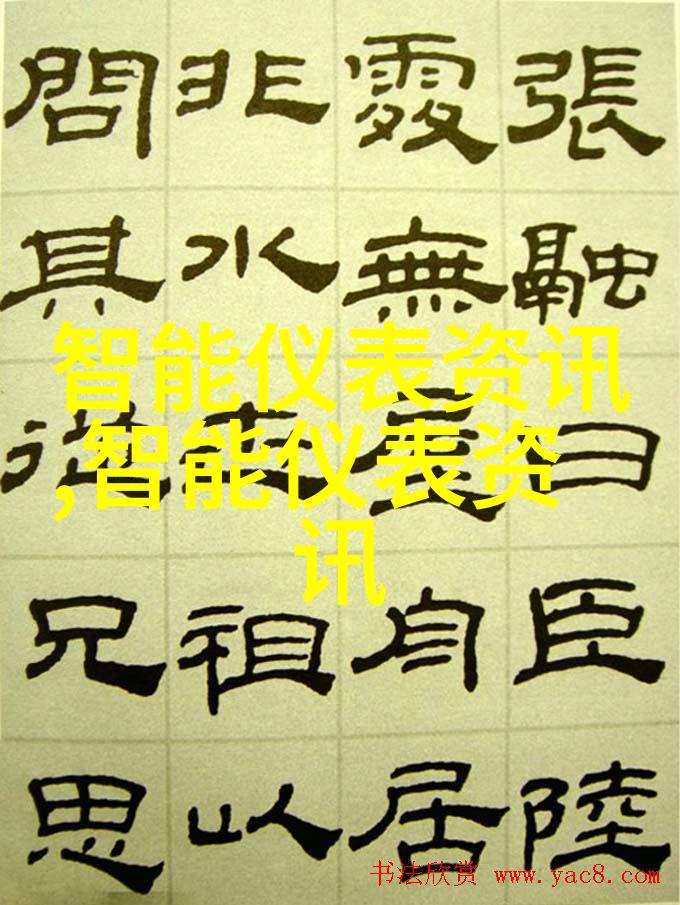 張融曰臣陸
處無屋舟居
非水太祖以
問其從兄思
智能仪表资讯
,智能仪表资
讯
书法欣赏 www.yac8.com